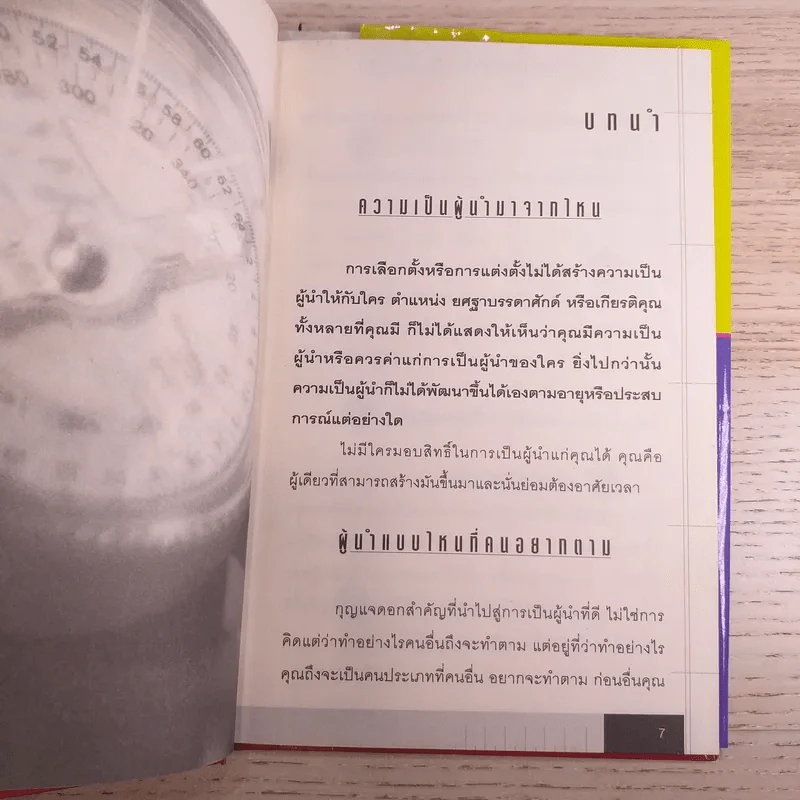 52
54
58
60
62
64
300
20
340
บทนำ
ความเป็นผู้นำมาจากไหน
การเลือกตั้งหรือการแต่งตั้งไม่ได้สร้างความเป็น
ผู้นำให้กับใคร ตำแหน่ง ยศฐาบรรดาศักดิ์ หรือเกียรติคุณ
ทั้งหลายที่คุณมี ก็ไม่ได้แสดงให้เห็นว่าคุณมีความเป็น
ผู้นำหรือควรค่าแก่การเป็นผู้นำของใคร ยิ่งไปกว่านั้น
ความเป็นผู้นำก็ไม่ได้พัฒนาขึ้นได้เองตามอายุหรือประสบ
การณ์แต่อย่างใด
ไม่มีใครมอบสิทธิ์ในการเป็นผู้นำแก่คุณได้ คุณคือ
ผู้เดียวที่สามารถสร้างมันขึ้นมาและนั่นย่อมต้องอาศัยเวลา
ผู้นำแบบไหนที่คนอยากตาม
กุญแจดอกสำคัญที่นำไปสู่การเป็นผู้นำที่ดี ไม่ใช่การ
คิดแต่ว่าทำอย่างไรคนอื่นถึงจะทำตาม แต่อยู่ที่ว่าทำอย่างไร
คุณถึงจะเป็นคนประเภทที่คนอื่น อยากจะทำตาม ก่อนอื่นคุณ
7